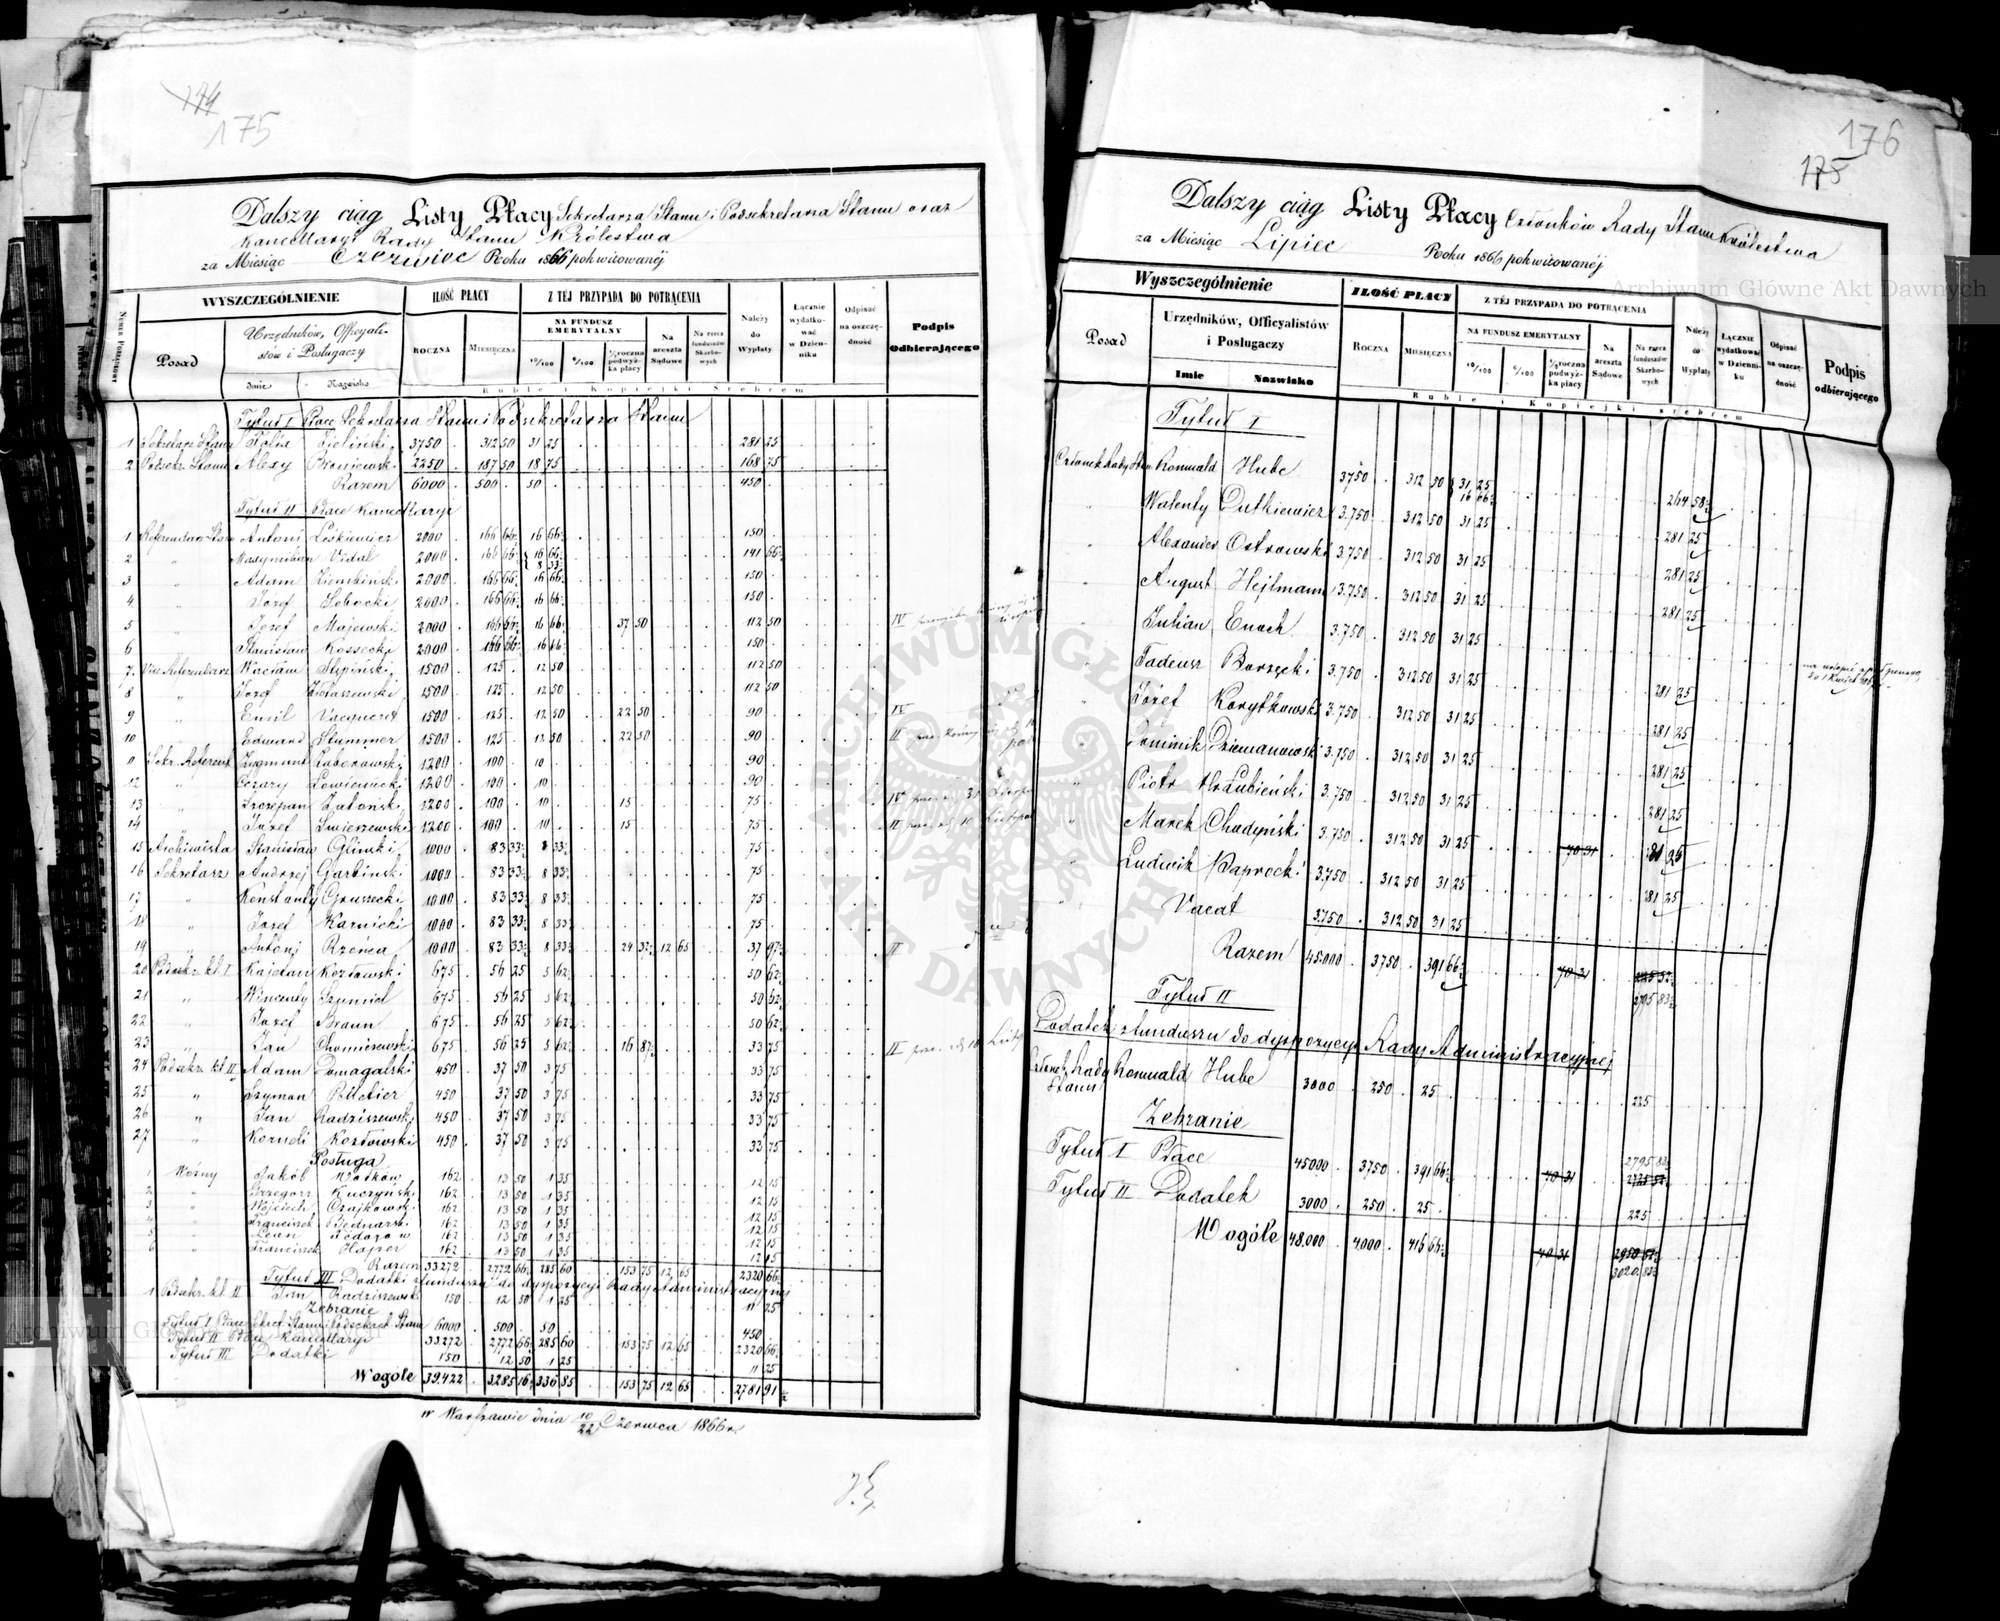 174
175
Dalszy ciąg Listy Płacy Sekretarza Stanu i Podsekretarza Stanu oraz
Kancellaryi Rady Stanu Królestwa
za Miesiąc Czerwiec Roku 1866 pokwitowanéj
Numer Porządkowy
WYSZCZEGÓLNIENIE
ILOŚĆ PŁACY
Z TÉJ PRZYPADA DO POTRĄCENIA
Posad
Urzędników, Officyalistów i Posługaczy
Imie Nazwisko
ROCZNA MIESIĘCZNA
NA FUNDUSZ EMERYTALNY
10/100 6/100 ½ roczna podwyżka płacy
Na areszta Sądowe
Na rzecz funduszów Skarbowych
Należy do Wypłaty
Łącznie wydatkować w Dzienniku
Odpisać na oszczędność
Podpis Odbierającego
Ruble i Kopiejki Srebrem
Tytuł I Płace Sekretarza Stanu i Podsekretarza Stanu
1 Sekretarz Stanu Felix Zieliński 3750 312 50 31 25 281 25
2 Podsekr. Stanu Alexy Broniewski 2250 187 50 18 75 168 75
Razem 6000 500 50 450
Tytuł II Płace Kancellaryi
1 Referendarz Stanu Antoni Leśkiewicz 2000 166 66 16 66 150
2 " Maxymilian Vidal 2000 166 66 16 66 8 33 141 66
3 " Adam Ziembiński 2000 166 66 16 66 150
4 " Józef Sobocki 2000 166 66 16 66 150
5 " Józef Majewski 2000 166 66 16 66 37 50 112 50 IV
6 " Stanisław Kossecki 2000 166 66 16 66 150
7 Vice Referendarz Wacław Stępiński 1500 125 12 50 112 50
8 " Józef 1500 125 12 50 112 50
9 " Emil Vacqueret 1500 125 12 50 22 50 90 IV
10 " Edward Stummer 1500 125 12 50 22 50 90 II
11 Sekr. Referent Zygmunt Zaborowski 1200 100 10 90
12 " Cezary Łowiewicki 1200 100 10 90
13 " Szczepan Zatoński 1200 100 10 15 75 IV
14 " Józef Śmieszewski 1200 100 10 15 75 II 10 Listopad
15 Archiwista Stanisław Gliński 1000 83 33 8 33 75
16 Sekretarz Andrzej Garbiński 1000 83 33 8 33 75
17 " Konstanty Gruszecki 1000 83 33 8 33 75
18 " Józef Karnicki 1000 83 33 8 33 75
19 " Antoni Rzeńca 1000 83 33 8 33 24 37 12 65 37 97 II
20 Podsekr. kl. I Kajetan Kozłowski 675 56 25 5 62 50 62
21 " Wincenty Szumiel 675 56 25 5 62 50 62
22 " Józef Braun 675 56 25 5 62 50 62
23 " Jan Chomiszewski 675 56 25 5 62 16 87 33 75 II
24 Podsekr. kl. II Adam Domagalski 450 37 50 3 75 33 75
25 " Szymon Pelletier 450 37 50 3 75 33 75
26 " Jan Radziszewski 450 37 50 3 75 33 75
27 " Korneli Kozłowski 450 37 50 3 75 33 75
Posługa
1 Woźny Jakób Wołków 162 13 50 1 35 12 15
2 " Grzegorz Kuczyński 162 13 50 1 35 12 15
3 " Wojciech Czajkowski 162 13 50 1 35 12 15
4 " Franciszek Bednarski 162 13 50 1 35 12 15
5 " Leon Fedorow 162 13 50 1 35 12 15
6 " Franciszek Hajzer 162 13 50 1 35 12 15
Razem 33272 2772 66 285 60 153 75 12 65 2320 66
Tytuł III Dodatki z funduszu do dyspozycyi Rady Administracyjnej
1 Podsekr. kl. II Jan Radziszewski 150 12 50 1 25 11 25
Zebranie
Tytuł I Płace Sekret. Stanu i Podsekret. Stanu 6000 500 50 450
Tytuł II Płace Kancellaryi 33272 2772 66 285 60 153 75 12 65 2320 66
Tytuł III Dodatki 150 12 50 1 25 11 25
Wogóle 39422 3285 16 336 85 153 75 12 65 2781 91
w Warszawie dnia 10/22 Czerwca 1866 r.
176
175
Dalszy ciąg Listy Płacy Członków Rady Stanu Królestwa
za Miesiąc Lipiec Roku 1866 pokwitowanéj
Wyszczególnienie
ILOŚĆ PŁACY
Z TÉJ PRZYPADA DO POTRĄCENIA
Posad
Urzędników, Officyalistów i Posługaczy
Imie Nazwisko
ROCZNA MIESIĘCZNA
NA FUNDUSZ EMERYTALNY
10/100 6/100 ½ roczna podwyżka płacy
Na areszta Sądowe
Na rzecz funduszów Skarbowych
Należy do Wypłaty
Łącznie wydatkować w Dzienniku
Odpisać na oszczędność
Podpis odbierającego
Ruble i Kopiejki srebrem
Tytuł I
Członek Rady Stanu Romuald Hube 3750 312 50 31 25 16 66 264 58
" Walenty Dutkiewicz 3.750 312 50 31 25 281 25
" Alexander Ostrowski 3.750 312 50 31 25 281 25
" August Hejlmann 3.750 312 50 31 25 281 25
" Julian Enoch 3.750 312 50 31 25
" Tadeusz Borzęcki 3.750 312 50 31 25 281 25
" Józef Korytkowski 3.750 312 50 31 25 281 25
" Dominik Dziewanowski 3.750 312 50 31 25 281 25
" Piotr Hr. Łubieński 3.750 312 50 31 25 281 25
" Marek Chadyński 3.750 312 50 31 25 70 31 281 25
" Ludwik Paprocki 3.750 312 50 31 25 281 25
Vacat 3.750 312 50 31 25
Razem 45.000 3750 391 66 70 31 2795 83
Tytuł II
Dodatek z funduszu do dyspozycyi Rady Administracyjnej
Członek Rady Stanu Romuald Hube 3000 250 25 225
Zebranie
Tytuł I Płace 45000 3750 391 66 70 31 2795 83 2725 52
Tytuł II Dodatek 3000 250 25 225
Wogóle 48.000 4.000 416 66 70 31 2950 52 3020 83
Archiwum Główne Akt Dawnych
ARCHIWUM GŁÓWNE AKT DAWNYCH
Archiwum Główne Akt Dawnych